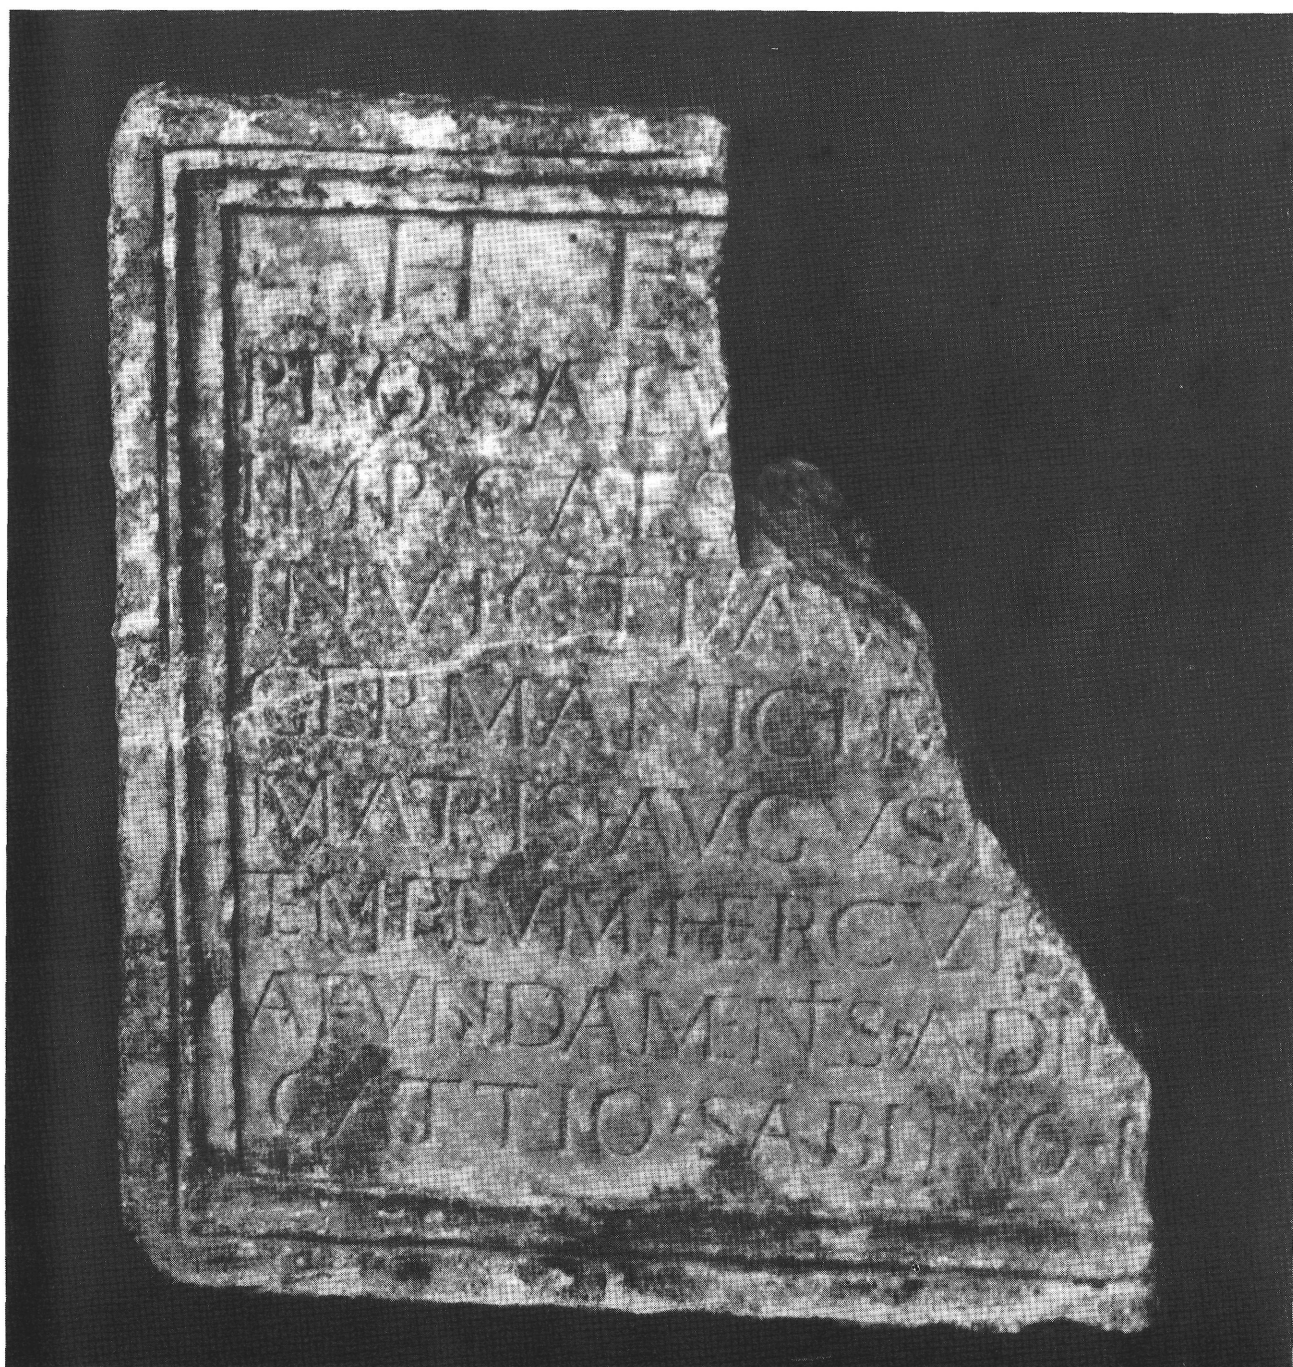 I I E
PRO SAL
IMP CAES
INVICTI AV
GERMANICI M
MATRIS AVGVS
TEMPLVM HERCVLIS
A FVNDAMENTIS ADIE
C ATTIO SABINO